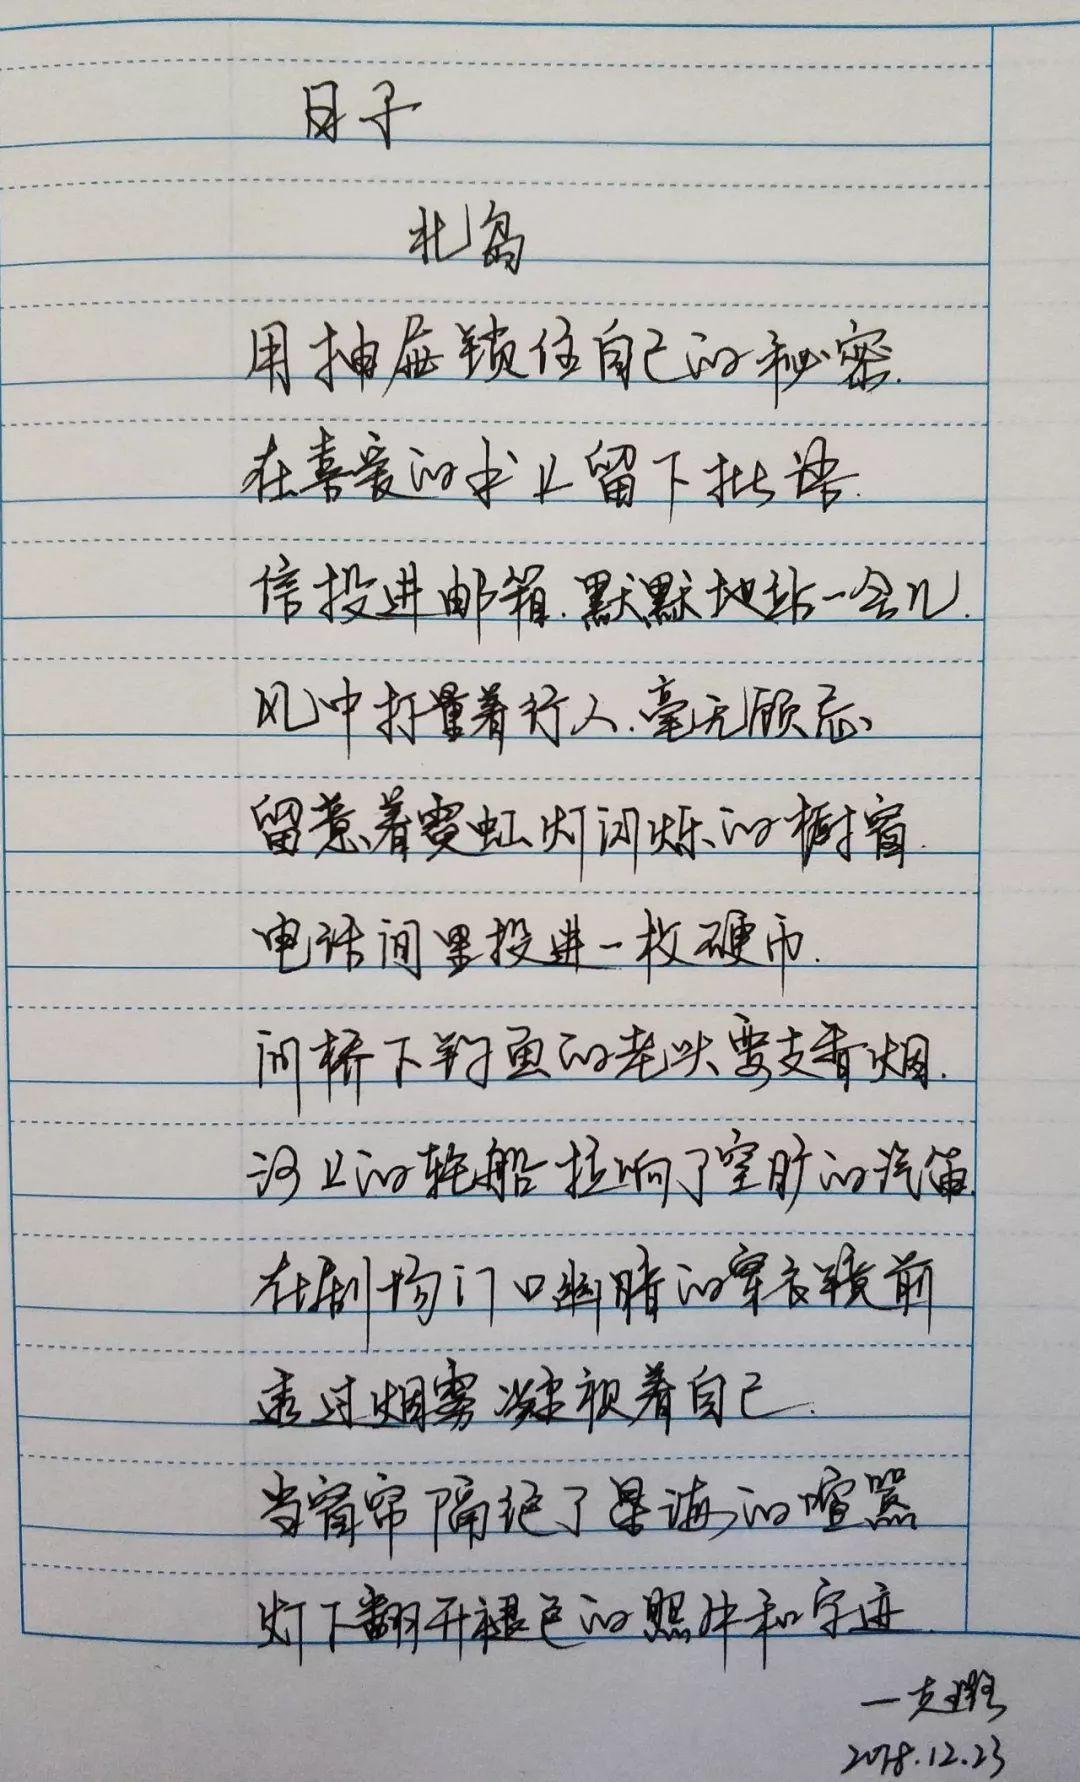 日子
北岛
用抽屉锁住自己的秘密.
在喜爱的书上留下批语.
信投进邮箱.默默地站一会儿.
风中打量着行人.毫无顾忌
留意着霓虹灯闪烁的橱窗.
电话间里投进一枚硬币.
问桥下钓鱼的老头要支香烟.
河上的轮船拉响了空旷的汽笛.
在剧场门口幽暗的穿衣镜前
透过烟雾凝视着自己.
当窗帘隔绝了星海的喧嚣
灯下翻开褪色的照片和字迹.
2018.12.23